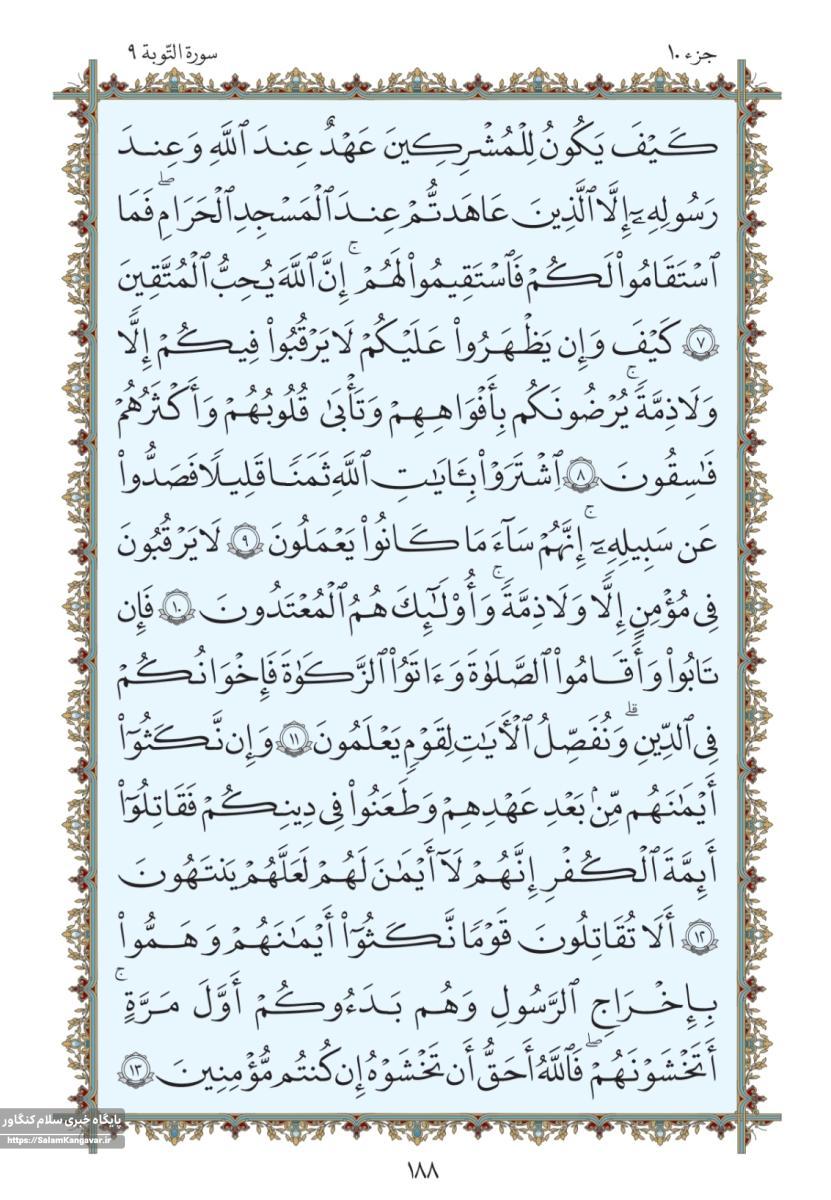 جزء ۱۰
سورة التّوبة ۹
كَيۡفَ يَكُونُ لِلۡمُشۡرِكِينَ عَهۡدٌ عِندَ ٱللَّهِ وَعِندَ
رَسُولِهِۦٓ إِلَّا ٱلَّذِينَ عَاهَدتُّمۡ عِندَ ٱلۡمَسۡجِدِ ٱلۡحَرَامِۖ فَمَا
ٱسۡتَقَامُواْ لَكُمۡ فَٱسۡتَقِيمُواْ لَهُمۡۚ إِنَّ ٱللَّهَ يُحِبُّ ٱلۡمُتَّقِينَ
۷ كَيۡفَ وَإِن يَظۡهَرُواْ عَلَيۡكُمۡ لَا يَرۡقُبُواْ فِيكُمۡ إِلّٗا
وَلَا ذِمَّةٗۚ يُرۡضُونَكُم بِأَفۡوَٰهِهِمۡ وَتَأۡبَىٰ قُلُوبُهُمۡ وَأَكۡثَرُهُمۡ
فَٰسِقُونَ ۸ ٱشۡتَرَوۡاْ بِـَٔايَٰتِ ٱللَّهِ ثَمَنٗا قَلِيلٗا فَصَدُّواْ
عَن سَبِيلِهِۦٓۚ إِنَّهُمۡ سَآءَ مَا كَانُواْ يَعۡمَلُونَ ۹ لَا يَرۡقُبُونَ
فِي مُؤۡمِنٍ إِلّٗا وَلَا ذِمَّةٗۚ وَأُوْلَٰٓئِكَ هُمُ ٱلۡمُعۡتَدُونَ ۱۰ فَإِن
تَابُواْ وَأَقَامُواْ ٱلصَّلَوٰةَ وَءَاتَوُاْ ٱلزَّكَوٰةَ فَإِخۡوَٰنُكُمۡ
فِي ٱلدِّينِۗ وَنُفَصِّلُ ٱلۡأٓيَٰتِ لِقَوۡمٖ يَعۡلَمُونَ ۱۱ وَإِن نَّكَثُوٓاْ
أَيۡمَٰنَهُم مِّنۢ بَعۡدِ عَهۡدِهِمۡ وَطَعَنُواْ فِي دِينِكُمۡ فَقَٰتِلُوٓاْ
أَئِمَّةَ ٱلۡكُفۡرِ إِنَّهُمۡ لَآ أَيۡمَٰنَ لَهُمۡ لَعَلَّهُمۡ يَنتَهُونَ
۱۲ أَلَا تُقَٰتِلُونَ قَوۡمٗا نَّكَثُوٓاْ أَيۡمَٰنَهُمۡ وَهَمُّواْ
بِإِخۡرَاجِ ٱلرَّسُولِ وَهُم بَدَءُوكُمۡ أَوَّلَ مَرَّةٍۚ
أَتَخۡشَوۡنَهُمۡۖ فَٱللَّهُ أَحَقُّ أَن تَخۡشَوۡهُ إِن كُنتُم مُّؤۡمِنِينَ ۱۳
پایگاه خبری سلام کنگاور
https://SalamKangavar.ir
۱۸۸